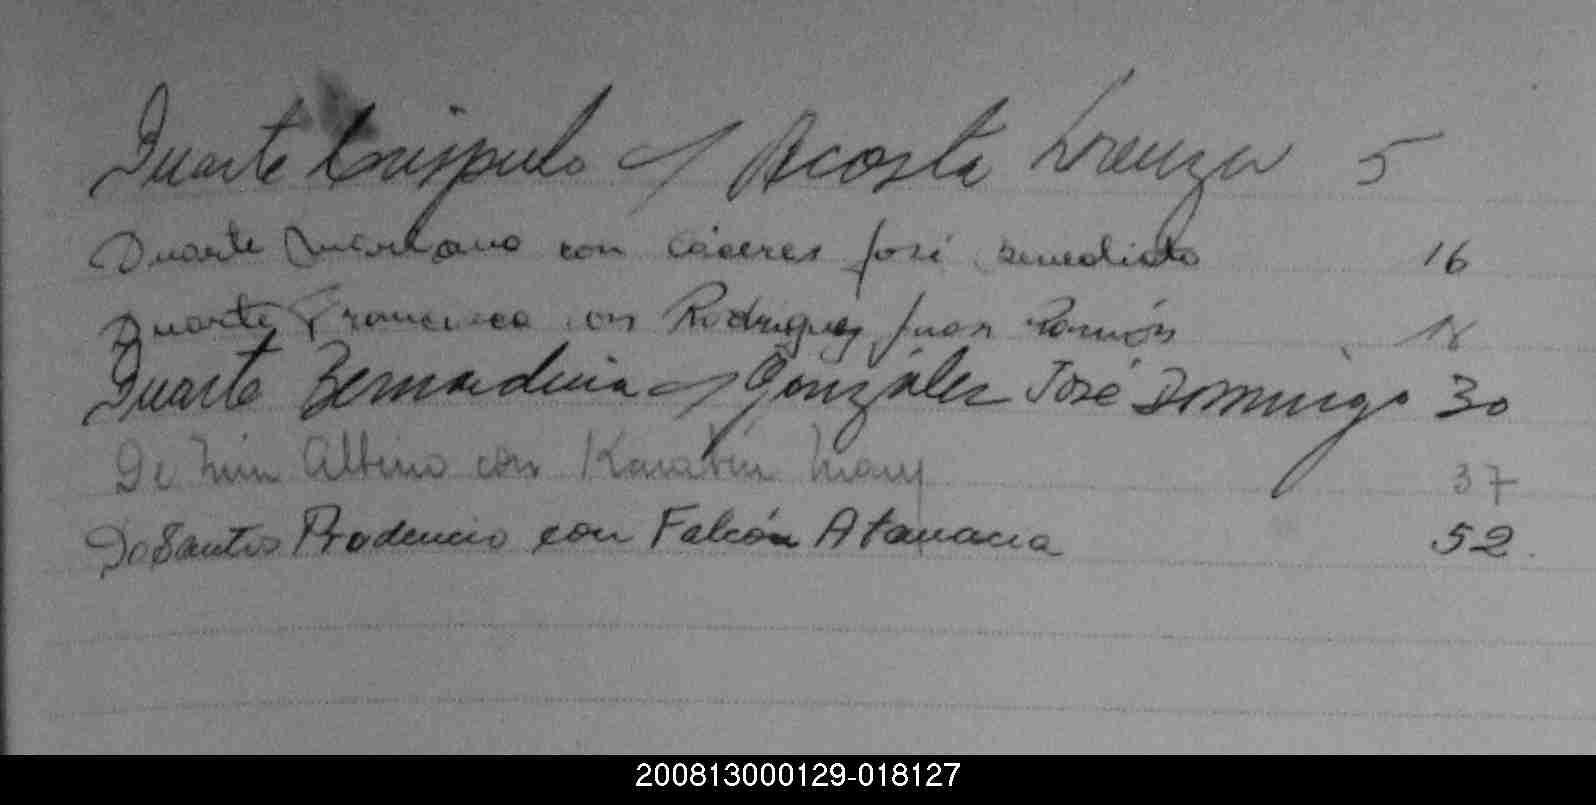 Duarte Crispulo c/ Acosta Lorenza 5
Duarte Mariana con Cáceres José Benedicto 16
Duarte Francisca con Rodriguez Juan Ramón 18
Duarte Bernardina c/ González José Domingo 30
De Albino con Mary 37
Do Santos Prodencio con Falcón Atanacia 52
200813000129-018127